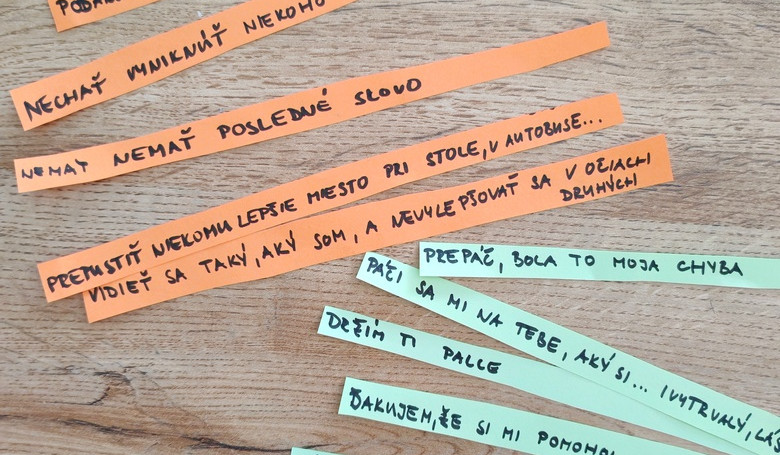 NECHAŤ VYNIKNÚŤ NIEKOHO
NEMAŤ NEMAŤ POSLEDNÉ SLOVO
PREPUSTIŤ NIEKOMU LEPŠIE MIESTO PRI STOLE, V AUTOBUSE...
VIDIEŤ SA TAKÝ, AKÝ SOM, A NEVYLEPŠOVAŤ SA V OČIACH
DRUHÝCH
PREPÁČ, BOLA TO MOJA CHYBA
PÁČI SA MI NA TEBE, AKÝ SI... (VYTRVALÝ,
DRŽÍM TI PALCE
ĎAKUJEM, ŽE SI MI